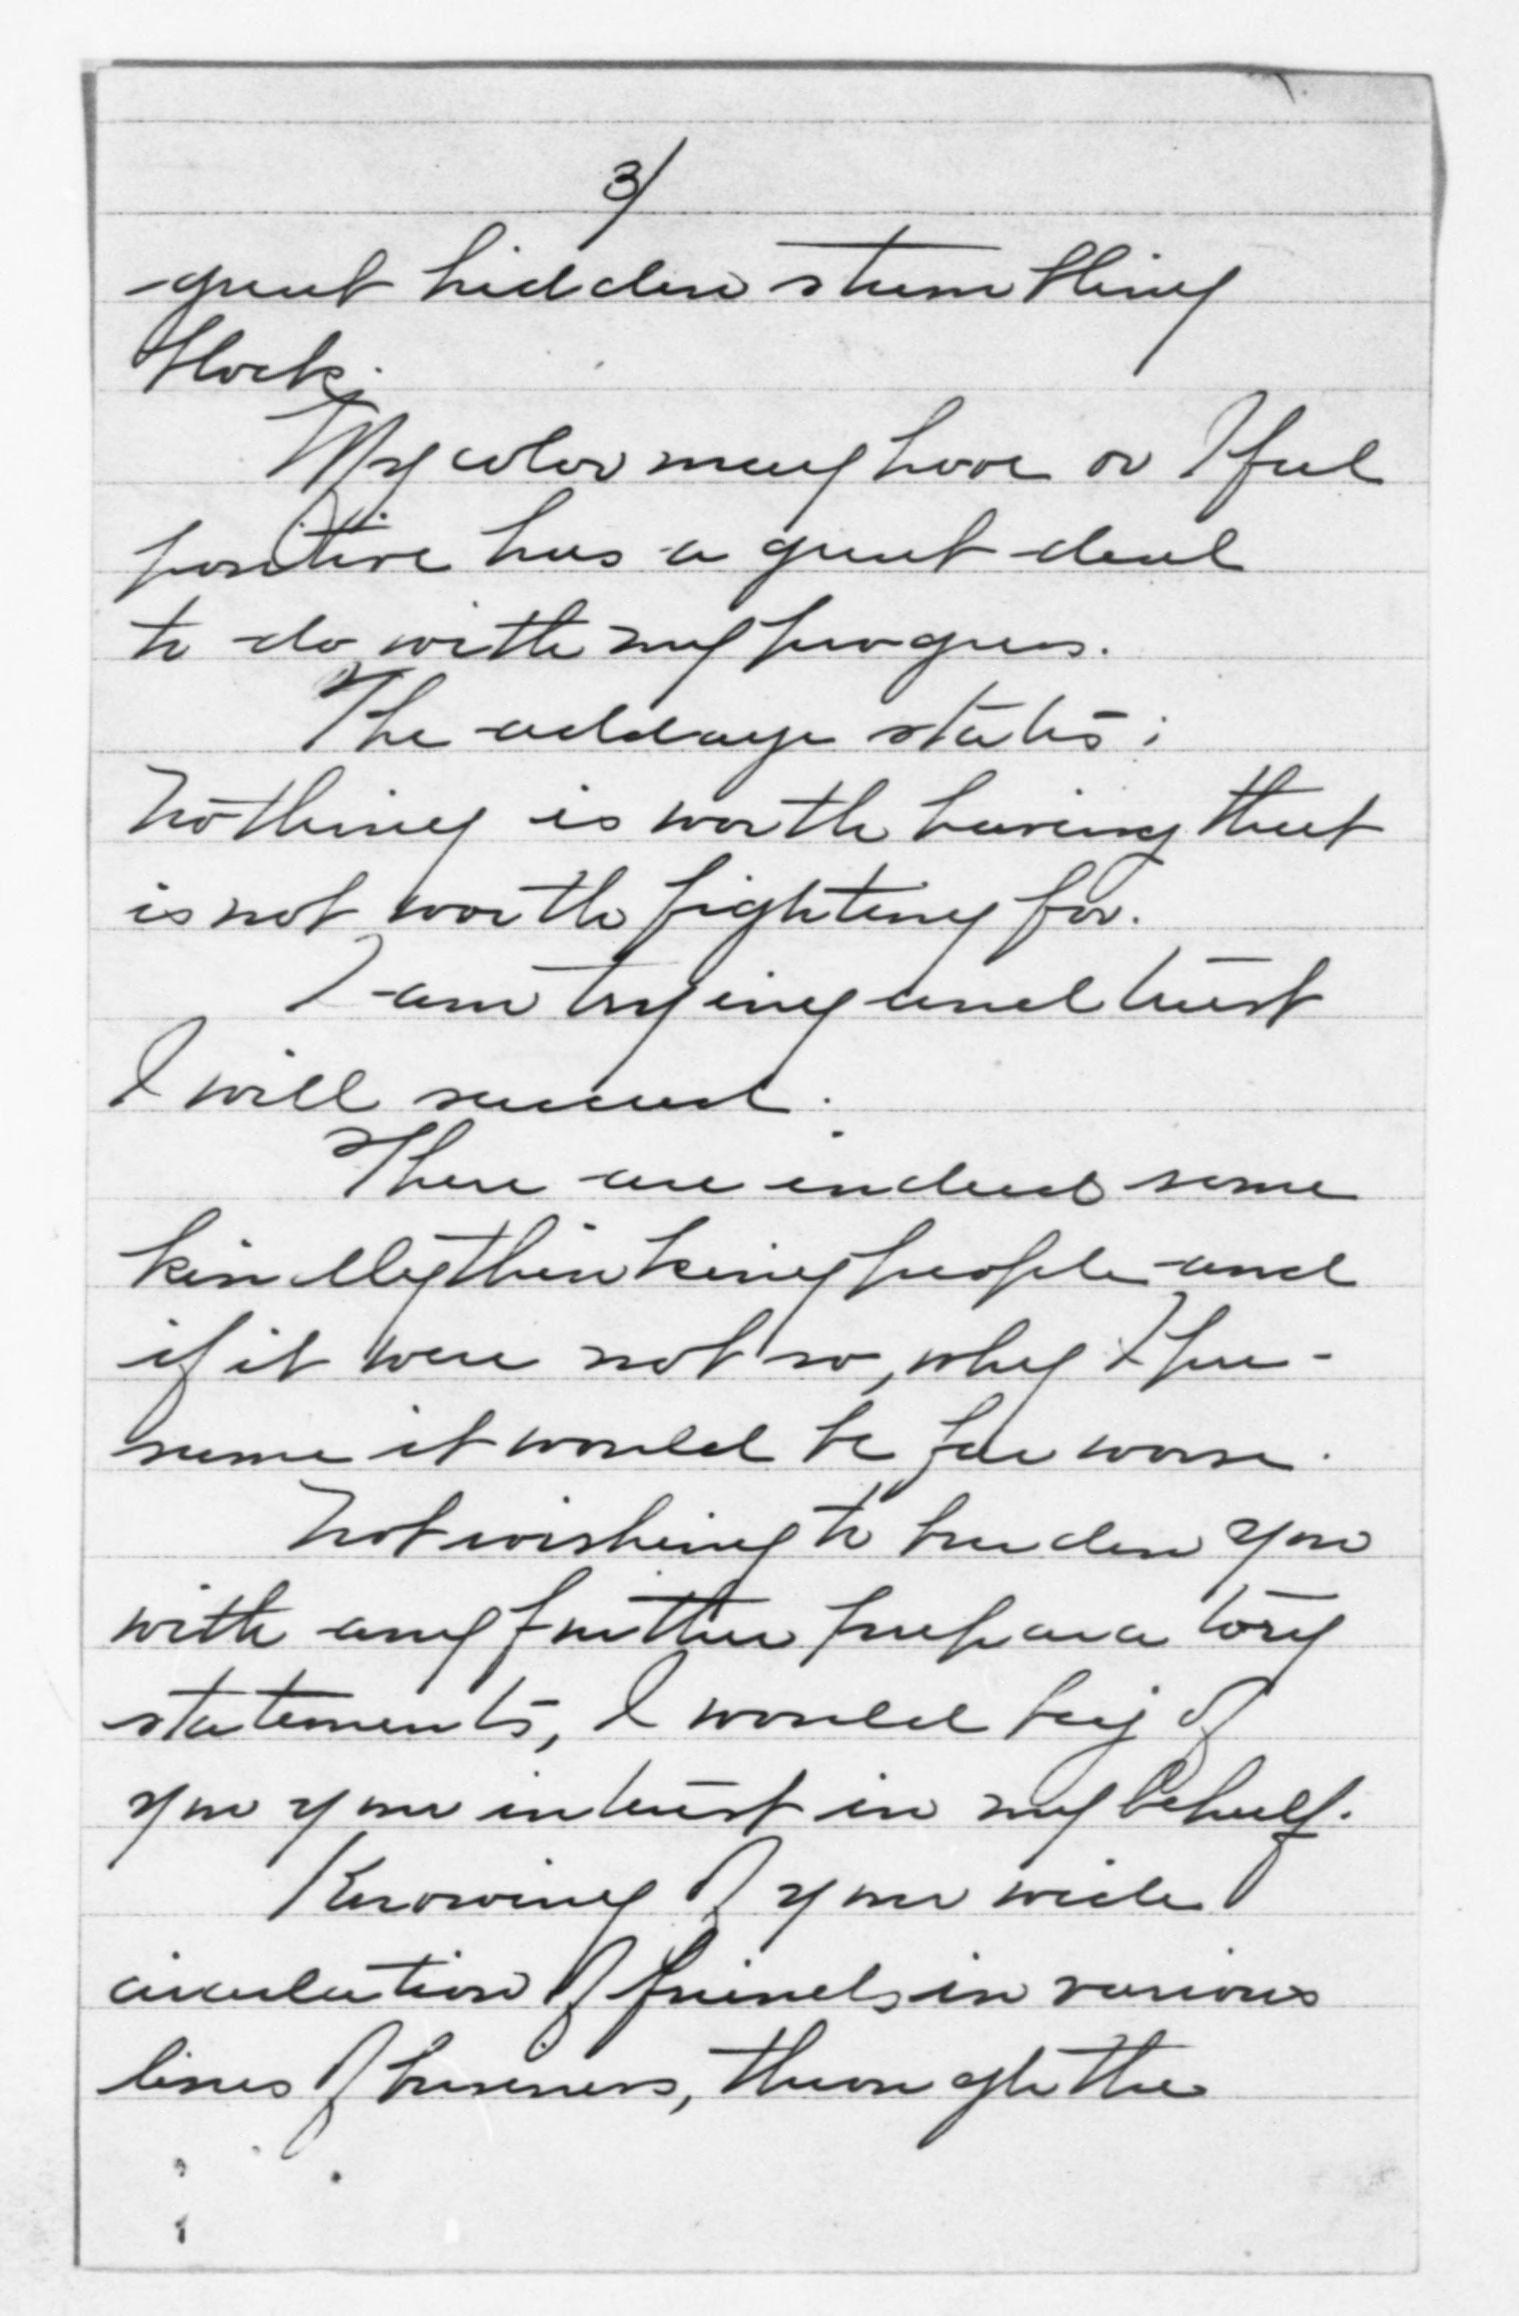 3/
great hidden stumbling
block.
My color may have or I feel
positive has a great deal
to do with my progress.
The addage states:
Nothing is worth having that
is not worth fighting for.
I am trying and trust
I will succeed.
There are indeed some
kindly thinking people and
if it were not so, why I pre-
sume it would be far worse.
Not wishing to burden you
with any further preparatory
statements, I would beg of
you your interest in my behalf.
Knowing of your wide
circulation of friends in various
lines of business, through the